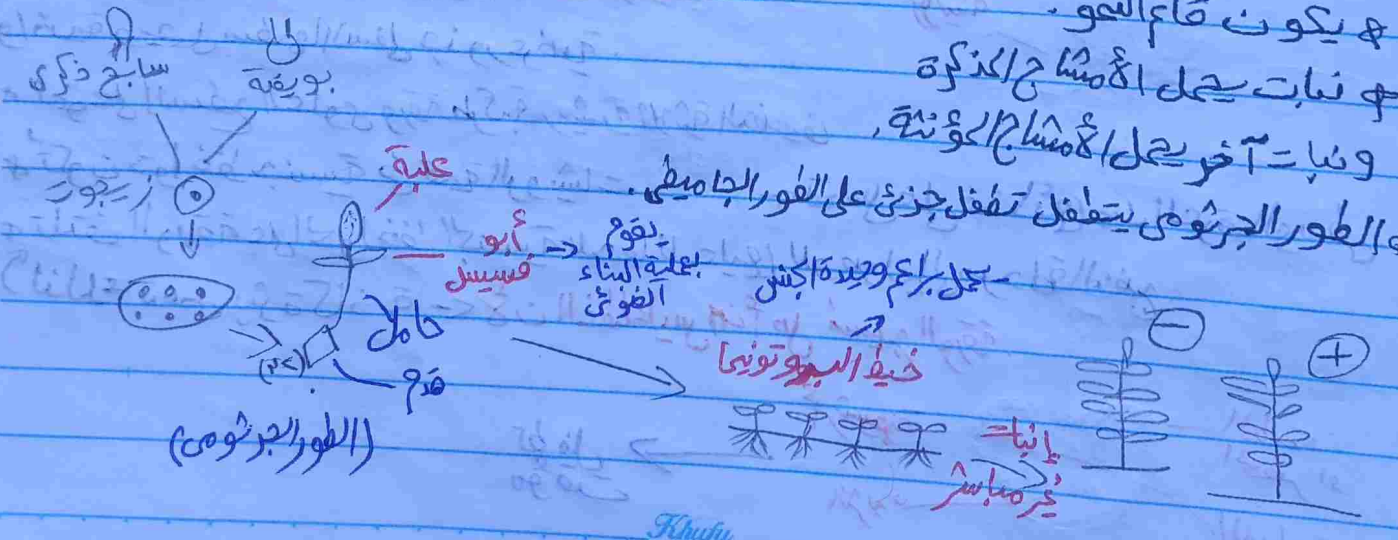 * يكون قائم النمو.
* نبات يحمل الأمشاج المذكرة
ونبات آخر يحمل الأمشاج المؤنثة.
والطور الجرثومي يتطفل تطفل جزئي على الطور الجاميطي.
سابح ذكري
بويضة
زيجوت
علبة
أبو
فسيس
يقوم
بعملية البناء
الضوئي
حامل
قدم
(٢ن)
(الطور الجرثومي)
يحمل براعم وحيدة الجنس
خيط البروتونيما
إنبات
غير مباشر
−
+
Khufu